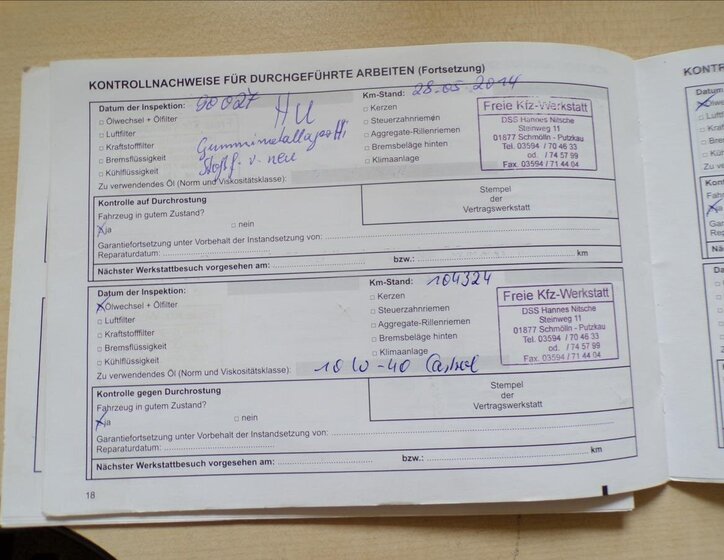 KONTROLLNACHWEISE FÜR DURCHGEFÜHRTE ARBEITEN (Fortsetzung)
Datum der Inspektion: 90 027 HU
Km-Stand: 28.05.2014
□ Ölwechsel + Ölfilter
□ Kerzen
□ Luftfilter
□ Steuerzahnriemen
□ Kraftstoffilter
□ Aggregate-Rillenriemen
□ Bremsflüssigkeit
□ Bremsbeläge hinten
□ Kühlflüssigkeit
□ Klimaanlage
Stoßf. v. neu
Zu verwendendes Öl (Norm und Viskositätsklasse):
Freie Kfz-Werkstatt
DSS Hannes Nitsche
Steinweg 11
01877 Schmölln - Putzkau
Tel. 03594 / 70 46 33
od. / 74 57 99
Fax. 03594 / 71 44 04
Kontrolle auf Durchrostung
Fahrzeug in gutem Zustand?
x ja □ nein
Stempel
der
Vertragswerkstatt
Garantiefortsetzung unter Vorbehalt der Instandsetzung von:
Reparaturdatum:
Nächster Werkstattbesuch vorgesehen am: bzw.: km
Datum der Inspektion:
Km-Stand: 104324
x Ölwechsel + Ölfilter
□ Kerzen
□ Luftfilter
□ Steuerzahnriemen
□ Kraftstoffilter
□ Aggregate-Rillenriemen
□ Bremsflüssigkeit
□ Bremsbeläge hinten
□ Kühlflüssigkeit
□ Klimaanlage
Zu verwendendes Öl (Norm und Viskositätsklasse): 10 W-40 Castrol
Freie Kfz-Werkstatt
DSS Hannes Nitsche
Steinweg 11
01877 Schmölln - Putzkau
Tel. 03594 / 70 46 33
od. / 74 57 99
Fax. 03594 / 71 44 04
Kontrolle gegen Durchrostung
Fahrzeug in gutem Zustand?
x ja □ nein
Stempel
der
Vertragswerkstatt
Garantiefortsetzung unter Vorbehalt der Instandsetzung von:
Reparaturdatum:
Nächster Werkstattbesuch vorgesehen am: bzw.: km
18